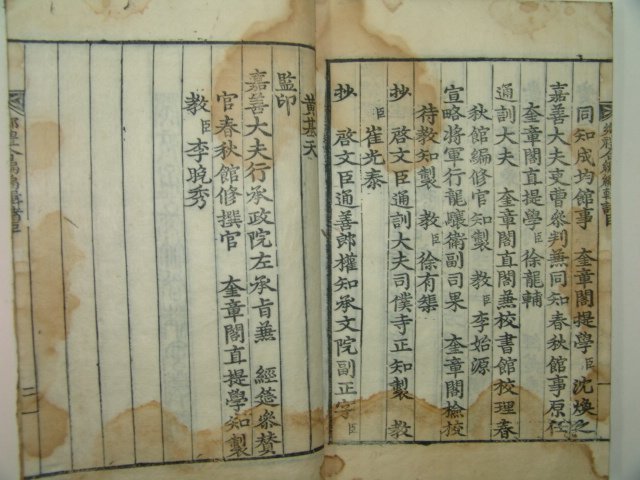 同知成均館事 奎章閣提學臣沈煥之
嘉善大夫吏曹參判兼同知春秋館事原任
奎章閣直提學臣徐龍輔
通訓大夫 奎章閣直閣兼校書館校理春
秋館編修官知製 教臣李始源
宣略將軍行龍驤衛副司果 奎章閣檢校
待教知製 教臣徐有榘
抄 啓文臣通訓大夫司僕寺正知製 教
臣崔光泰
抄 啓文臣通善郎權知承文院副正字臣
黃基天
監印
嘉善大夫行承政院左承旨兼 經筵參贊
官春秋館修撰官 奎章閣直提學知製
教臣李晩秀